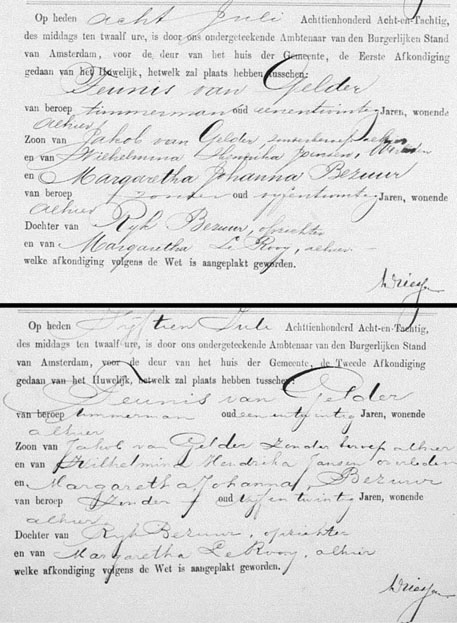 Op heden acht Juli Achttienhonderd Acht-en-Tachtig,
des middags ten twaalf ure, is door ons ondergeteekende Ambtenaar van den Burgerlijken Stand
van Amsterdam, voor de deur van het huis der Gemeente, de Eerste Afkondiging
gedaan van het Huwelijk, hetwelk zal plaats hebben tusschen:
Teunis van Gelder
van beroep timmerman oud eenentwintig Jaren, wonende
alhier
Zoon van Jakob van Gelder, zonder beroep alhier
en van Wilhelmina Hendrika Jansen,
en Margaretha Johanna Bezuur
van beroep zonder oud vijfentwintig Jaren, wonende
alhier
Dochter van Ryk Bezuur, opzichter
en van Margaretha Le Rooy, alhier
welke afkondiging volgens de Wet is aangeplakt geworden.
Op heden Vijftien Juli Achttienhonderd Acht-en-Tachtig,
des middags ten twaalf ure, is door ons ondergeteekende Ambtenaar van den Burgerlijken Stand
van Amsterdam, voor de deur van het huis der Gemeente, de Tweede Afkondiging
gedaan van het Huwelijk, hetwelk zal plaats hebben tusschen:
Teunis van Gelder
van beroep timmerman oud eenentwintig Jaren, wonende
alhier
Zoon van Jakob van Gelder zonder beroep alhier
en van Wilhelmina Hendrika Jansen overleden
en Margaretha Johanna Bezuur
van beroep Zonder oud vijfentwintig Jaren, wonende
alhier
Dochter van Ryk Bezuur, opzichter
en van Margaretha Le Rooy, alhier
welke afkondiging volgens de Wet is aangeplakt geworden.